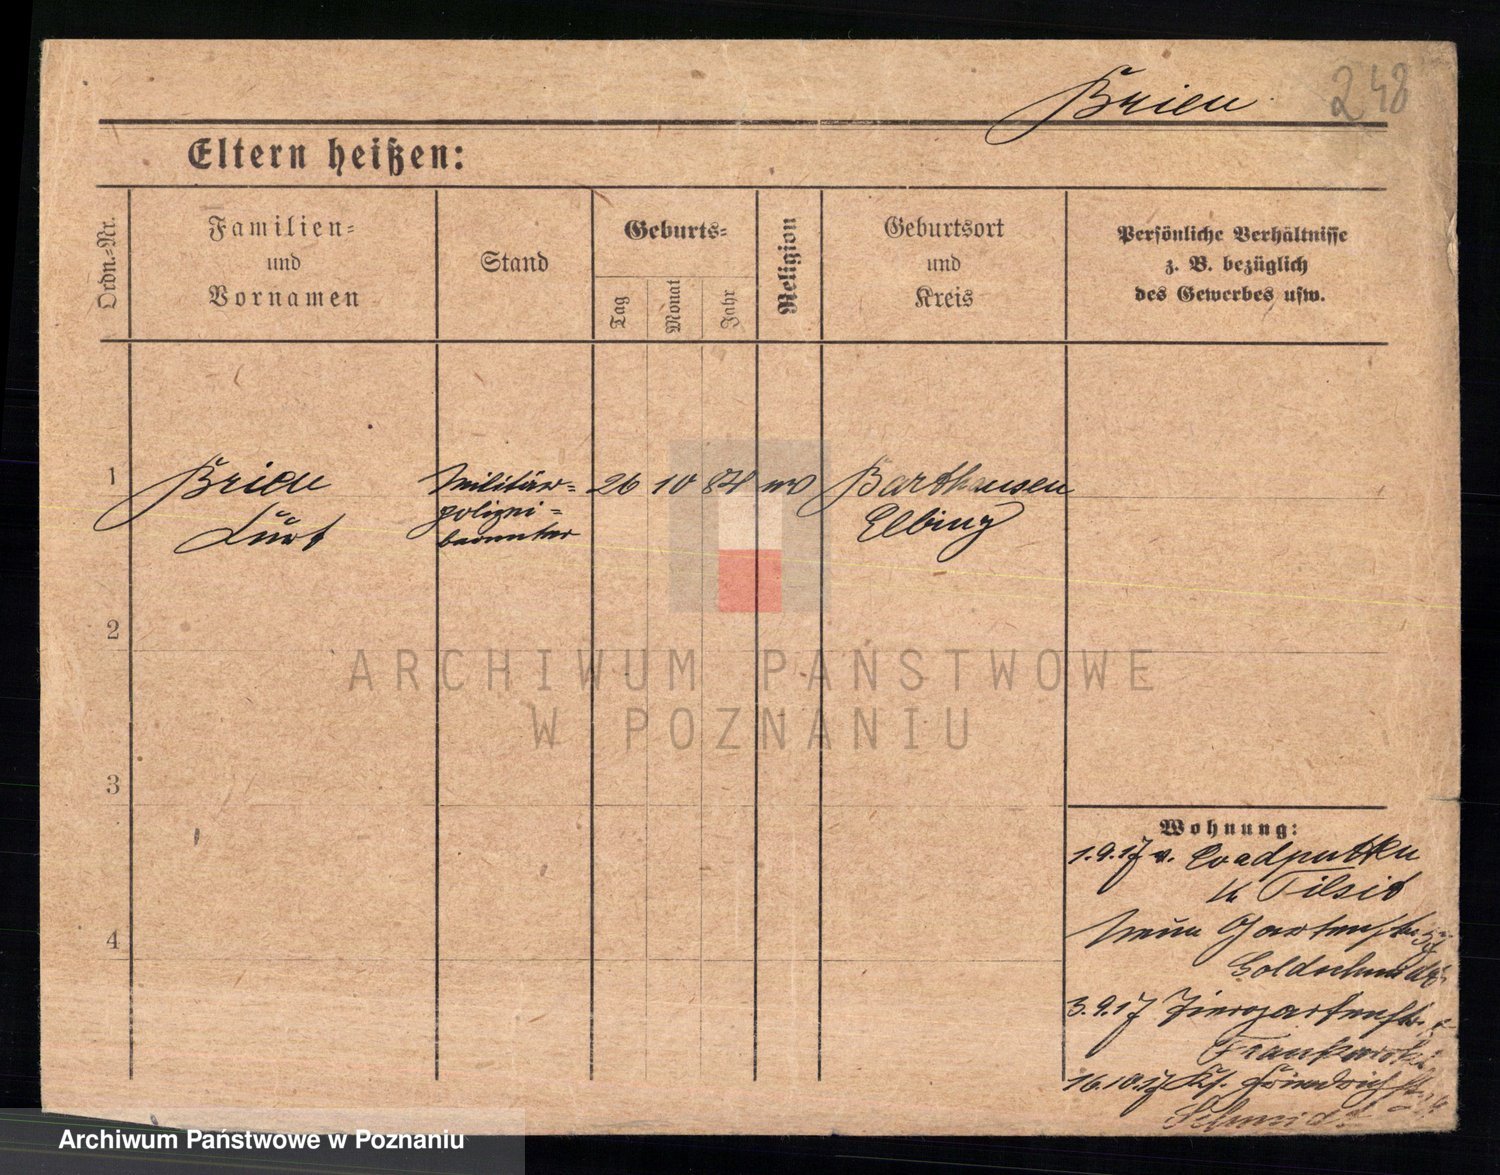 Brien 248
Eltern heißen:
Ordn.-Nr.
Familien-
und
Vornamen
Stand
Geburts-
Tag
Monat
Jahr
Religion
Geburtsort
und
Kreis
Persönliche Verhältnisse
z. B. bezüglich
des Gewerbes usw.
1 Brien Militär- 26 10 84 Barthausen
Kurt polizei- Elbing
beamter
2
ARCHIWUM PAŃSTWOWE
W POZNANIU
3
Wohnung:
1.9.17 v.
Tilsit
Neue Gartenstr.
Goldschmidt
4
3.9.17 Tiergartenstr.
Frankowski
16.10.17 Friedrichstr.
Schmidt
Archiwum Państwowe w Poznaniu